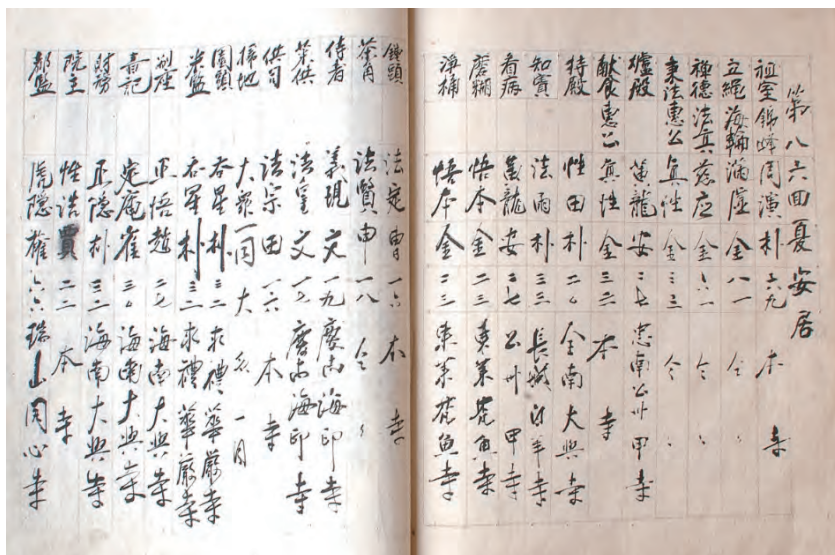 第八六回夏安居
祖室 錦峰周演 朴 六九 本寺
立繩 海輪滿虛 金 八一 仝 〻
禪德 法眞慈应 金 六一 仝 〻
秉法 惠公眞性 金 三三 仝 〻
爐殿 萬龍 安 二七 忠南公州甲寺
献食 惠公眞性 金 三三 本寺
持殿 性田 朴 二〇 全南大興寺
知賓 法雨 朴 三三 長城白羊寺
看病 萬龍 安 二七 公州甲寺
磨糊 悟本 金 二三 東萊梵魚寺
淨桶 悟本 金 二三 東萊梵魚寺
鐘頭 法定 申 一六 本寺
茶角 法賢 申 一八 仝 〻
侍者 義現 文 一九 慶南海印寺
菜供 法皇 文 一七 慶南海印寺
供司 法宗 田 一六 本寺
掃地 大衆一同 大衆一同
園頭 呑星 朴 三二 求禮華嚴寺
米監 呑星 朴 三二 求禮華嚴寺
別座 正悟 趙 二七 海南大興寺
書記 定庵 崔 三〇 海南大興寺
財務 正隱 朴 三二 海南大興寺
院主 性浩 賈 二二 本寺
都監 虎隱 崔 六六 瑞山同心寺